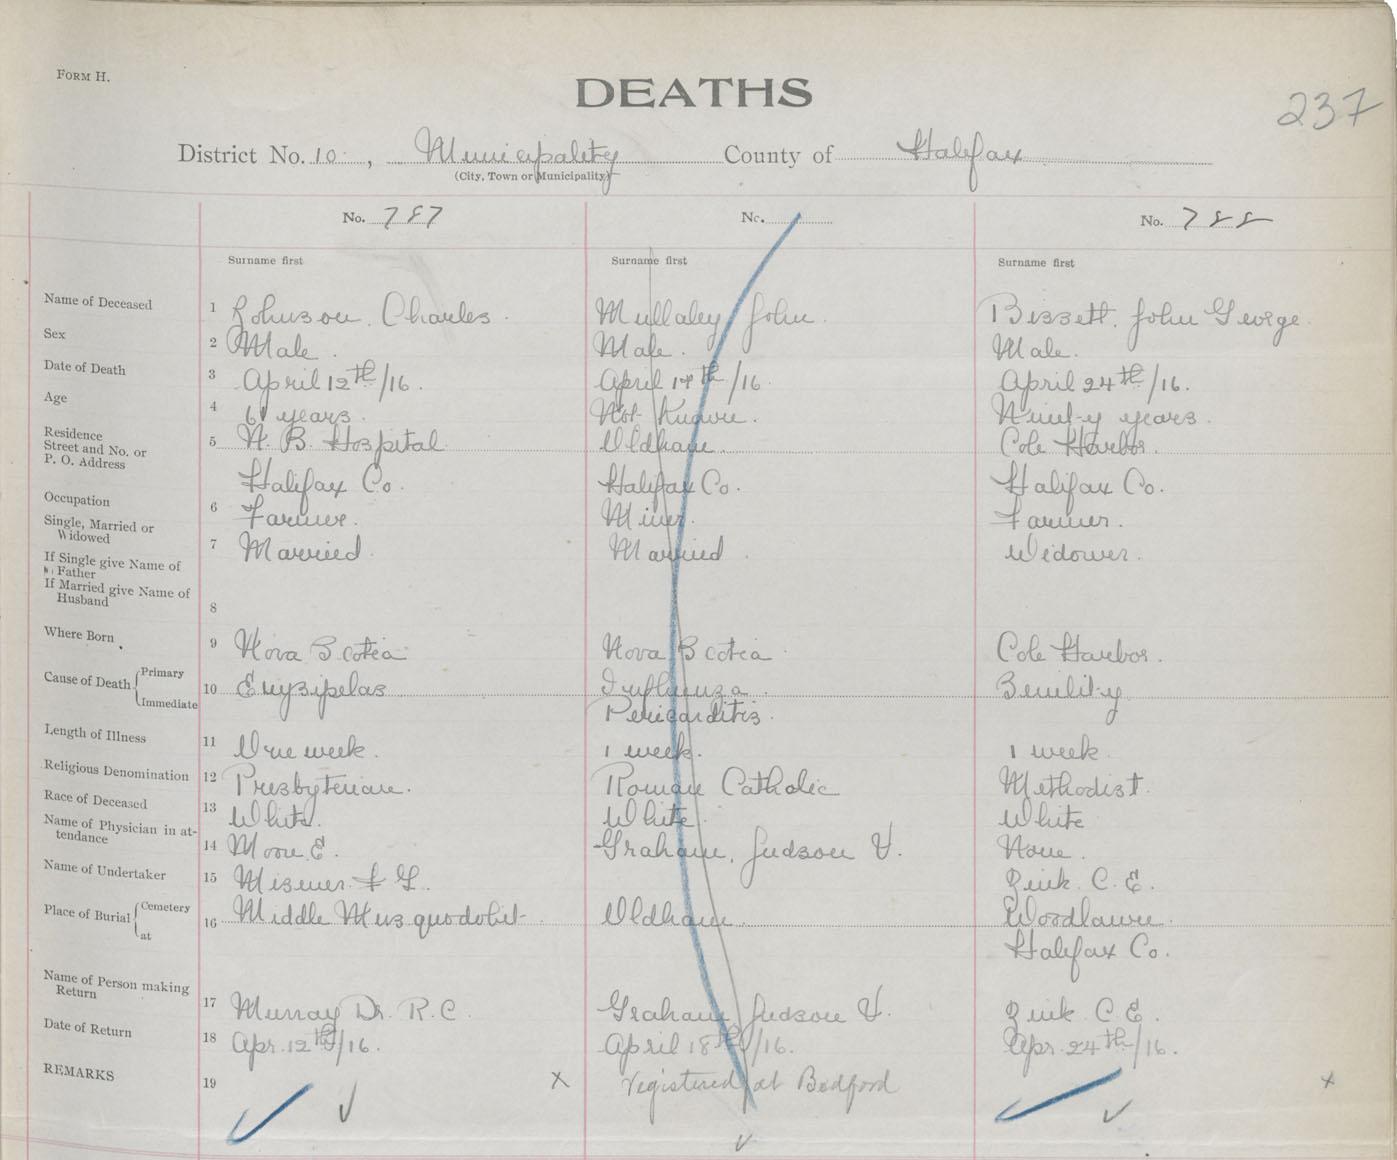 FORM H.
DEATHS
237
District No. 10, Municipality County of Halifax
(City, Town or Municipality)
No. 787 No. No. 788
Surname first Surname first Surname first
Name of Deceased 1 Johnson, Charles. Mullaley John. Bissett, John George.
Sex 2 Male. Male. Male.
Date of Death 3 April 12th/16. April 17th/16. April 24th/16.
Age 4 61 years. Not Known. Ninety years.
Residence Street and No. or P. O. Address 5 N. B. Hospital Oldham. Cole Harbor.
Halifax Co. Halifax Co. Halifax Co.
Occupation 6 Farmer. Miner. Farmer.
Single, Married or Widowed 7 Married. Married. Widower.
If Single give Name of Father
If Married give Name of Husband 8
Where Born 9 Nova Scotia Nova Scotia Cole Harbor.
Cause of Death Primary Immediate 10 Erysipelas Influenza. Senility
Pericarditis.
Length of Illness 11 One week. 1 week. 1 week.
Religious Denomination 12 Presbyterian. Roman Catholic Methodist.
Race of Deceased 13 White. White. White
Name of Physician in attendance 14 Moore E. Graham, Judson V. None.
Name of Undertaker 15 Misener F G. Zink. C. E.
Place of Burial Cemetery at 16 Middle Musquodobit Oldham. Woodlawn.
Halifax Co.
Name of Person making Return 17 Murray Dr. R. C. Graham Judson V. Zink. C. E.
Date of Return 18 Apr. 12th/16. April 18th/16. Apr. 24th/16.
REMARKS 19 x registered at Bedford x